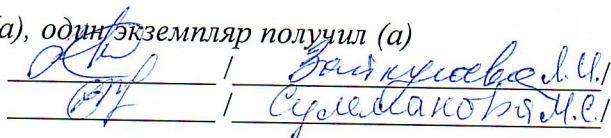 а), один экземпляр получил (а)
/ Зайнулаева Л.И./
/ Сулеманова М.С./